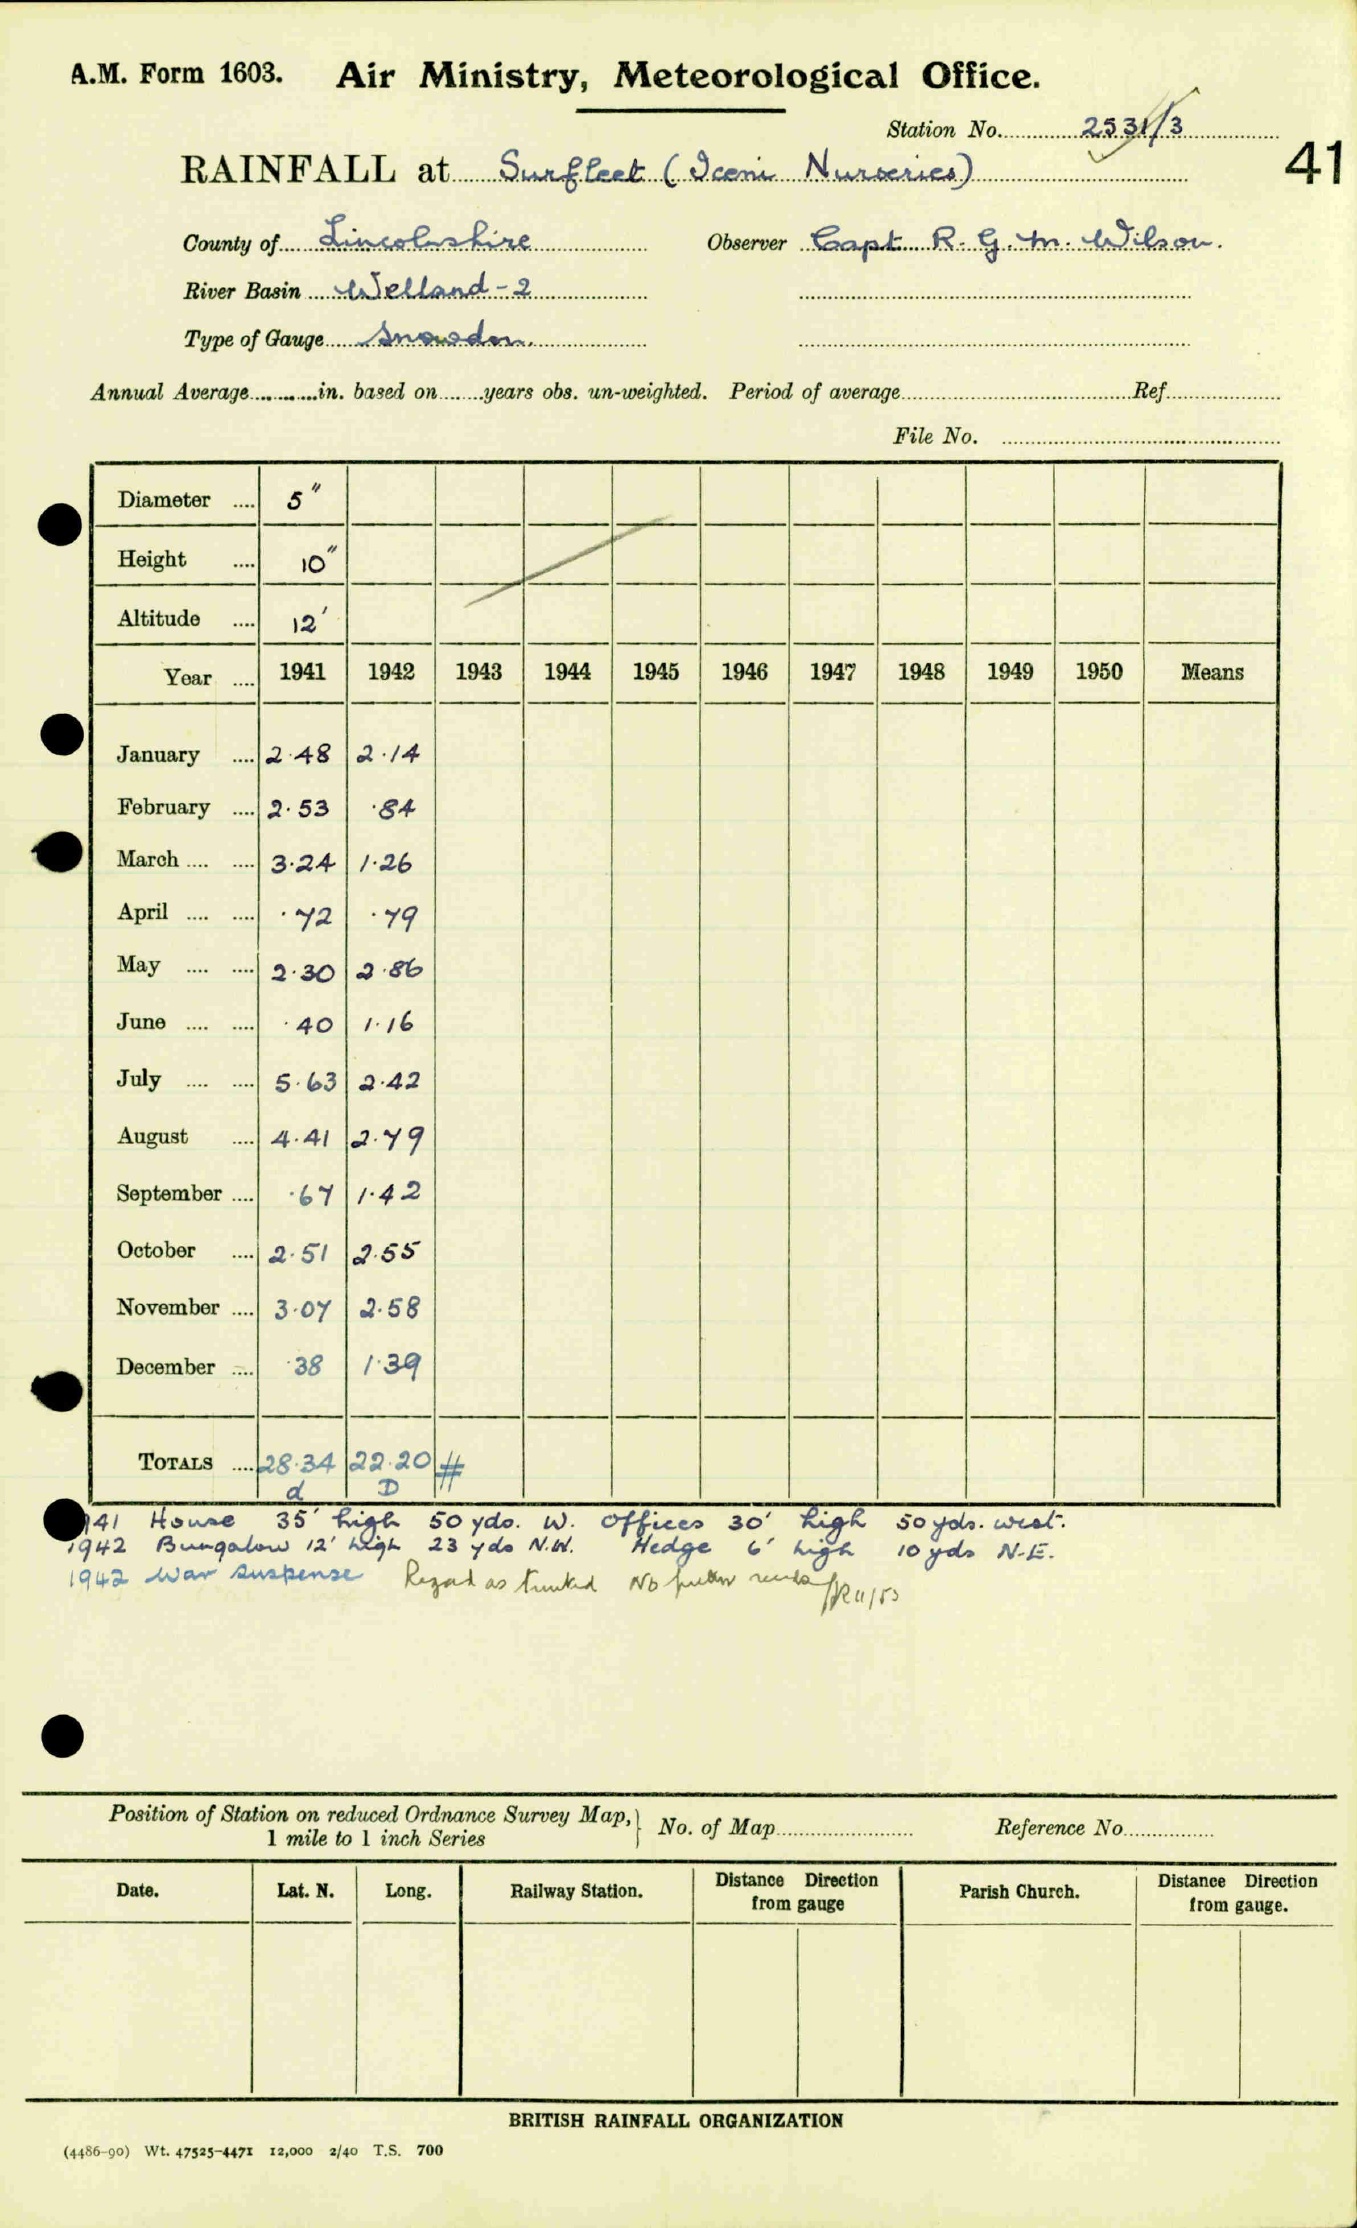 A.M. Form 1603. Air Ministry, Meteorological Office.
Station No. 2531/3
41
RAINFALL at Surfleet (Iceni Nurseries)
County of Lincolnshire Observer Capt R. G. M. Wilson.
River Basin Welland-2
Type of Gauge Snowdon.
Annual Average............in. based on........years obs. un-weighted. Period of average Ref.
File No.
Diameter .... 5"
Height .... 10"
Altitude .... 12'
Year .... 1941 1942 1943 1944 1945 1946 1947 1948 1949 1950 Means
January .... 2.48 2.14
February .... 2.53 .84
March .... .... 3.24 1.26
April .... .... .72 .79
May .... .... 2.30 2.86
June .... .... .40 1.16
July .... .... 5.63 2.42
August .... 4.41 2.79
September .... .67 1.42
October .... 2.51 2.55
November .... 3.07 2.58
December .... .38 1.39
TOTALS .... 28.34 22.20 #
d D
1941 House 35' high 50 yds. W. Offices 30' high 50 yds. west.
1942 Bungalow 12' high 23 yds N.W. Hedge 6' high 10 yds N-E.
1942 War suspense Regard as No 11/53
Position of Station on reduced Ordnance Survey Map, } No. of Map Reference No.
1 mile to 1 inch Series
Date. Lat. N. Long. Railway Station. Distance Direction from gauge Parish Church. Distance Direction from gauge.
BRITISH RAINFALL ORGANIZATION
(4486-90) Wt. 47525-4471 12,000 2/40 T.S. 700